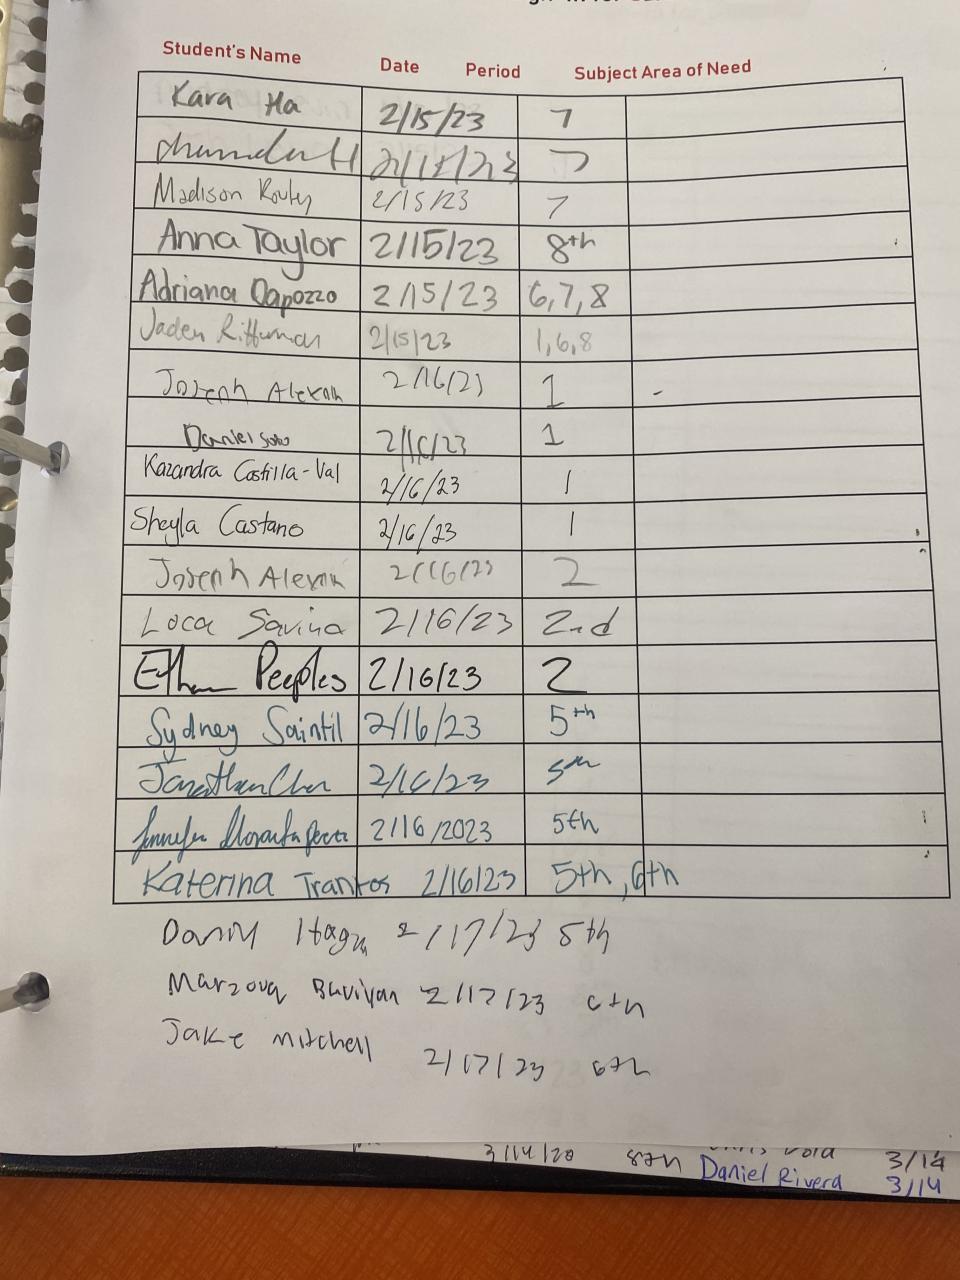 Student's Name Date Period Subject Area of Need
Kara Ha 2/15/23 7
2/15/23 7
Madison 2/15/23 7
Anna Taylor 2/15/23 8th
Adriana Dapozzo 2/15/23 6,7,8
Jaden 2/15/23 1,6,8
Joseph 2/16/23 1
Daniel Soto 2/16/23 1
Kazandra Castilla-Val 2/16/23 1
Sheyla Castano 2/16/23 1
Joseph 2/16/23 2
Loca Savina 2/16/23 2nd
Ethan Peeples 2/16/23 2
Sydney Saintil 2/16/23 5th
Jonathan 2/16/23 5th
Jennifer 2/16/2023 5th
Katerina Trantos 2/16/23 5th, 6th
2/17/23 5th
2/17/23 6th
Jake Mitchell 2/17/23 6th
8th 3/14
Daniel Rivera 3/14